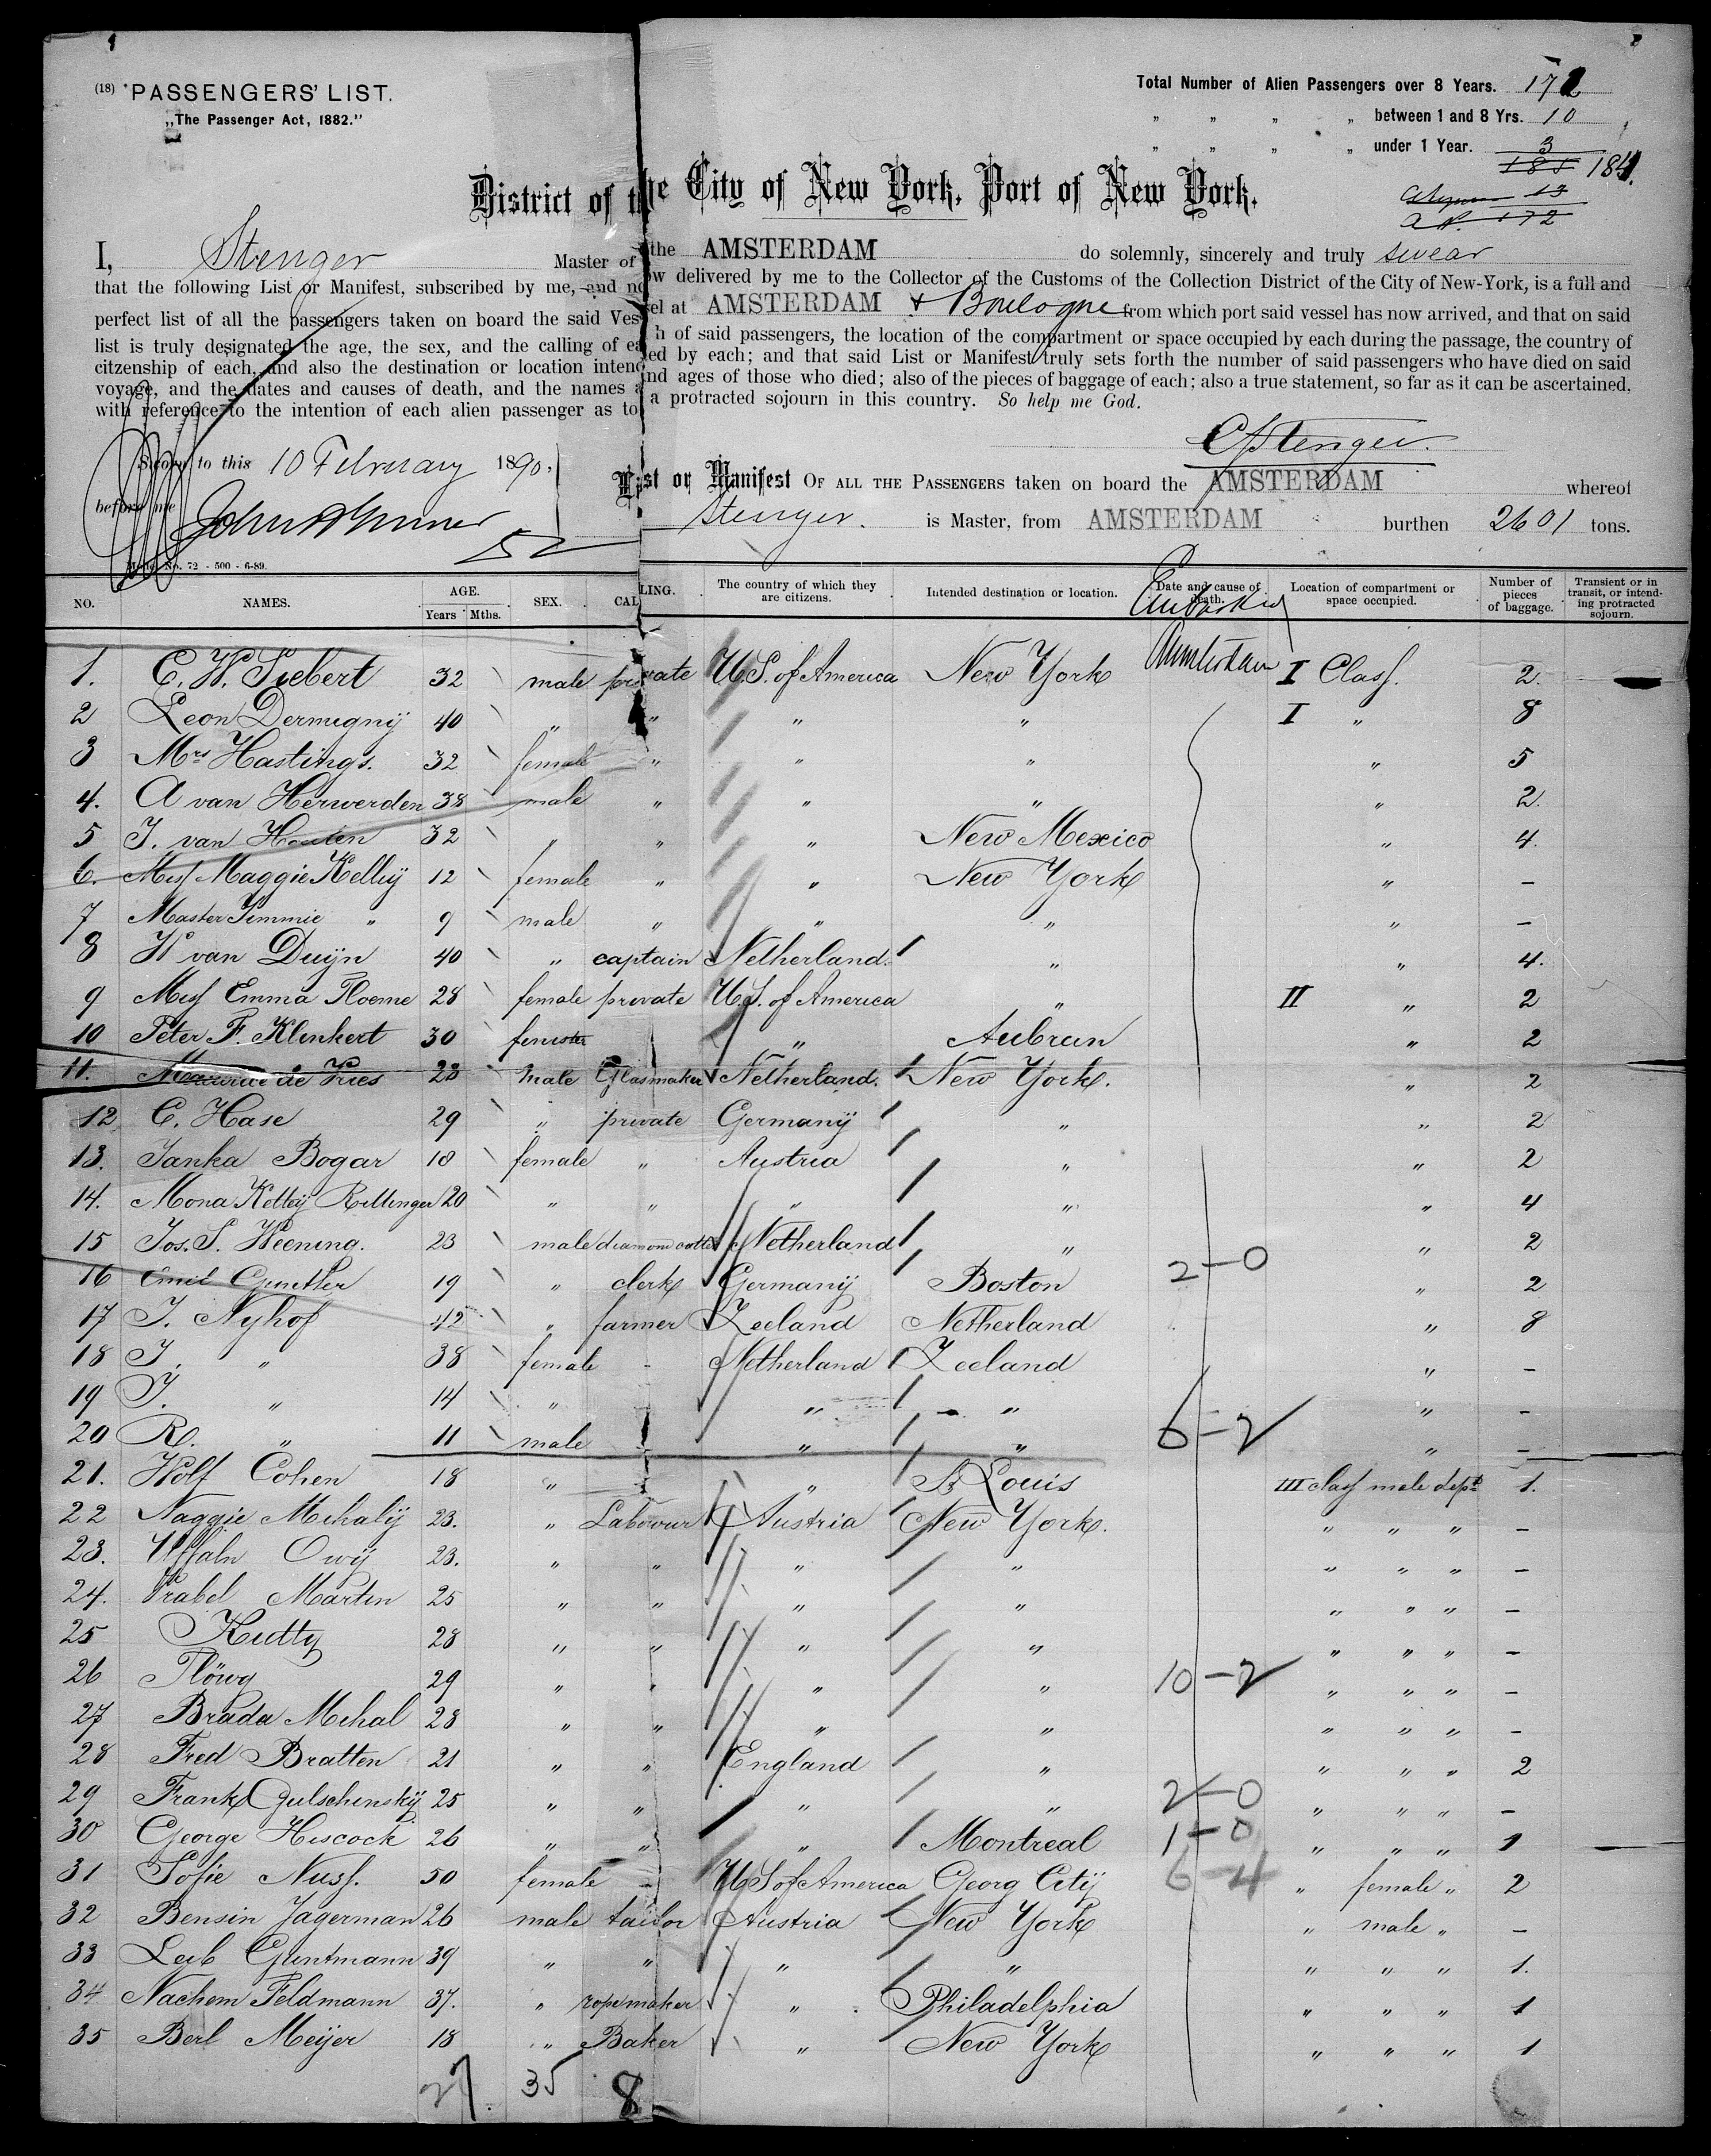 (18) PASSENGERS' LIST.
„The Passenger Act, 1882."
Total Number of Alien Passengers over 8 Years. 172
„ „ „ „ between 1 and 8 Yrs. 10
„ „ „ „ under 1 Year. 3
185 184.
13
172
District of the City of New York, Port of New York.
I, Stenger Master of the AMSTERDAM do solemnly, sincerely and truly swear
that the following List or Manifest, subscribed by me, and now delivered by me to the Collector of the Customs of the Collection District of the City of New-York, is a full and
perfect list of all the passengers taken on board the said Vessel at AMSTERDAM & Boulogne from which port said vessel has now arrived, and that on said
list is truly designated the age, the sex, and the calling of each of said passengers, the location of the compartment or space occupied by each during the passage, the country of
citzenship of each, and also the destination or location intended by each; and that said List or Manifest truly sets forth the number of said passengers who have died on said
voyage, and the dates and causes of death, and the names and ages of those who died; also of the pieces of baggage of each; also a true statement, so far as it can be ascertained,
with reference to the intention of each alien passenger as to a protracted sojourn in this country. So help me God.
Stenger.
Sworn to this 10 February 1890,
before me
List or Manifest OF ALL THE PASSENGERS taken on board the AMSTERDAM whereof
Stenger. is Master, from AMSTERDAM burthen 2601 tons.
Mod. No. 72 - 500 - 6-89.
NO. NAMES. AGE. Years Mths. SEX. CALLING. The country of which they are citizens. Intended destination or location. Date and cause of death. Embarked Location of compartment or space occupied. Number of pieces of baggage. Transient or in transit, or intending protracted sojourn.
1. C. W. Siebert 32 male private U.S. of America New York Amsterdam I Class. 2.
2 Leon Dermigny 40 „ „ „ „ I „ 8
3 Mrs Hastings. 32 female „ „ „ „ 5
4. A van Herwerden 38 male „ „ „ „ 2.
5 J. van Houten 32 „ „ „ New Mexico „ 4.
6. Miss Maggie Kelly 12 female „ „ New York „ –
7 Master Jimmie „ 9 male „ „ „ „ –
8 W van Duijn 40 „ captain Netherland. „ „ 4.
9 Miss Emma Ploeme 28 female private U.S. of America „ II „ 2
10 Peter F. Klinkert 30 „ Aubrun „ 2
11. Maurice de Vries 28 male Glasmaker Netherland. New York. „ 2
12 C. Hase 29 „ private Germany „ „ 2
13. Janka Bogar 18 female „ Austria „ „ 2
14. Mona Kelley Rillinger 20 „ „ „ „ „ 4
15 Jos. S. Weening. 23 male diamond cutter Netherland „ „ 2
16 Emil Gunther 19 „ clerk Germany Boston 2-0 „ 2
17 J. Nyhof 42 „ farmer Zeeland Netherland „ 8
18 J. „ 38 female - Netherland Zeeland „ –
19 J. „ 14 „ „ „ „ –
20 R. „ 11 male „ „ 6-2 „ –
21. Wolf Cohen 18 „ „ St Louis III class male dept 1.
22 Naggie Mihaly 23. „ Labourer Austria New York. „ „ „ –
23. Owy 23. „ „ „ „ „ „ „ –
24. Prabel Martin 25 „ „ „ „ „ „ „ –
25 Kutty 28 „ „ „ „ „ „ „ –
26 Plöwg 29 „ „ „ „ 10-2 „ „ „ –
27 Brada Mihal 28 „ „ „ „ „ „ „ –
28 Fred Bratten 21 „ „ England „ „ „ „ 2
29 Frank Gulschinsky 25 „ „ „ „ 2-0 „ „ „ –
30 George Hiscock 26 „ „ „ Montreal 1-0 „ „ „ 1
31 Sofie Nuss. 50 female - U.S of America Georg City 6-4 „ female „ 2
32 Bensin Jagerman 26 male tailor Austria New York „ male „ –
33 Leib Guntmann 39 „ „ „ „ „ „ „ 1.
34 Nachem Feldmann 37. „ ropemaker „ Philadelphia „ „ „ 1
35 Berl Meijer 18 „ Baker „ New York „ „ „ 1
27 35 8